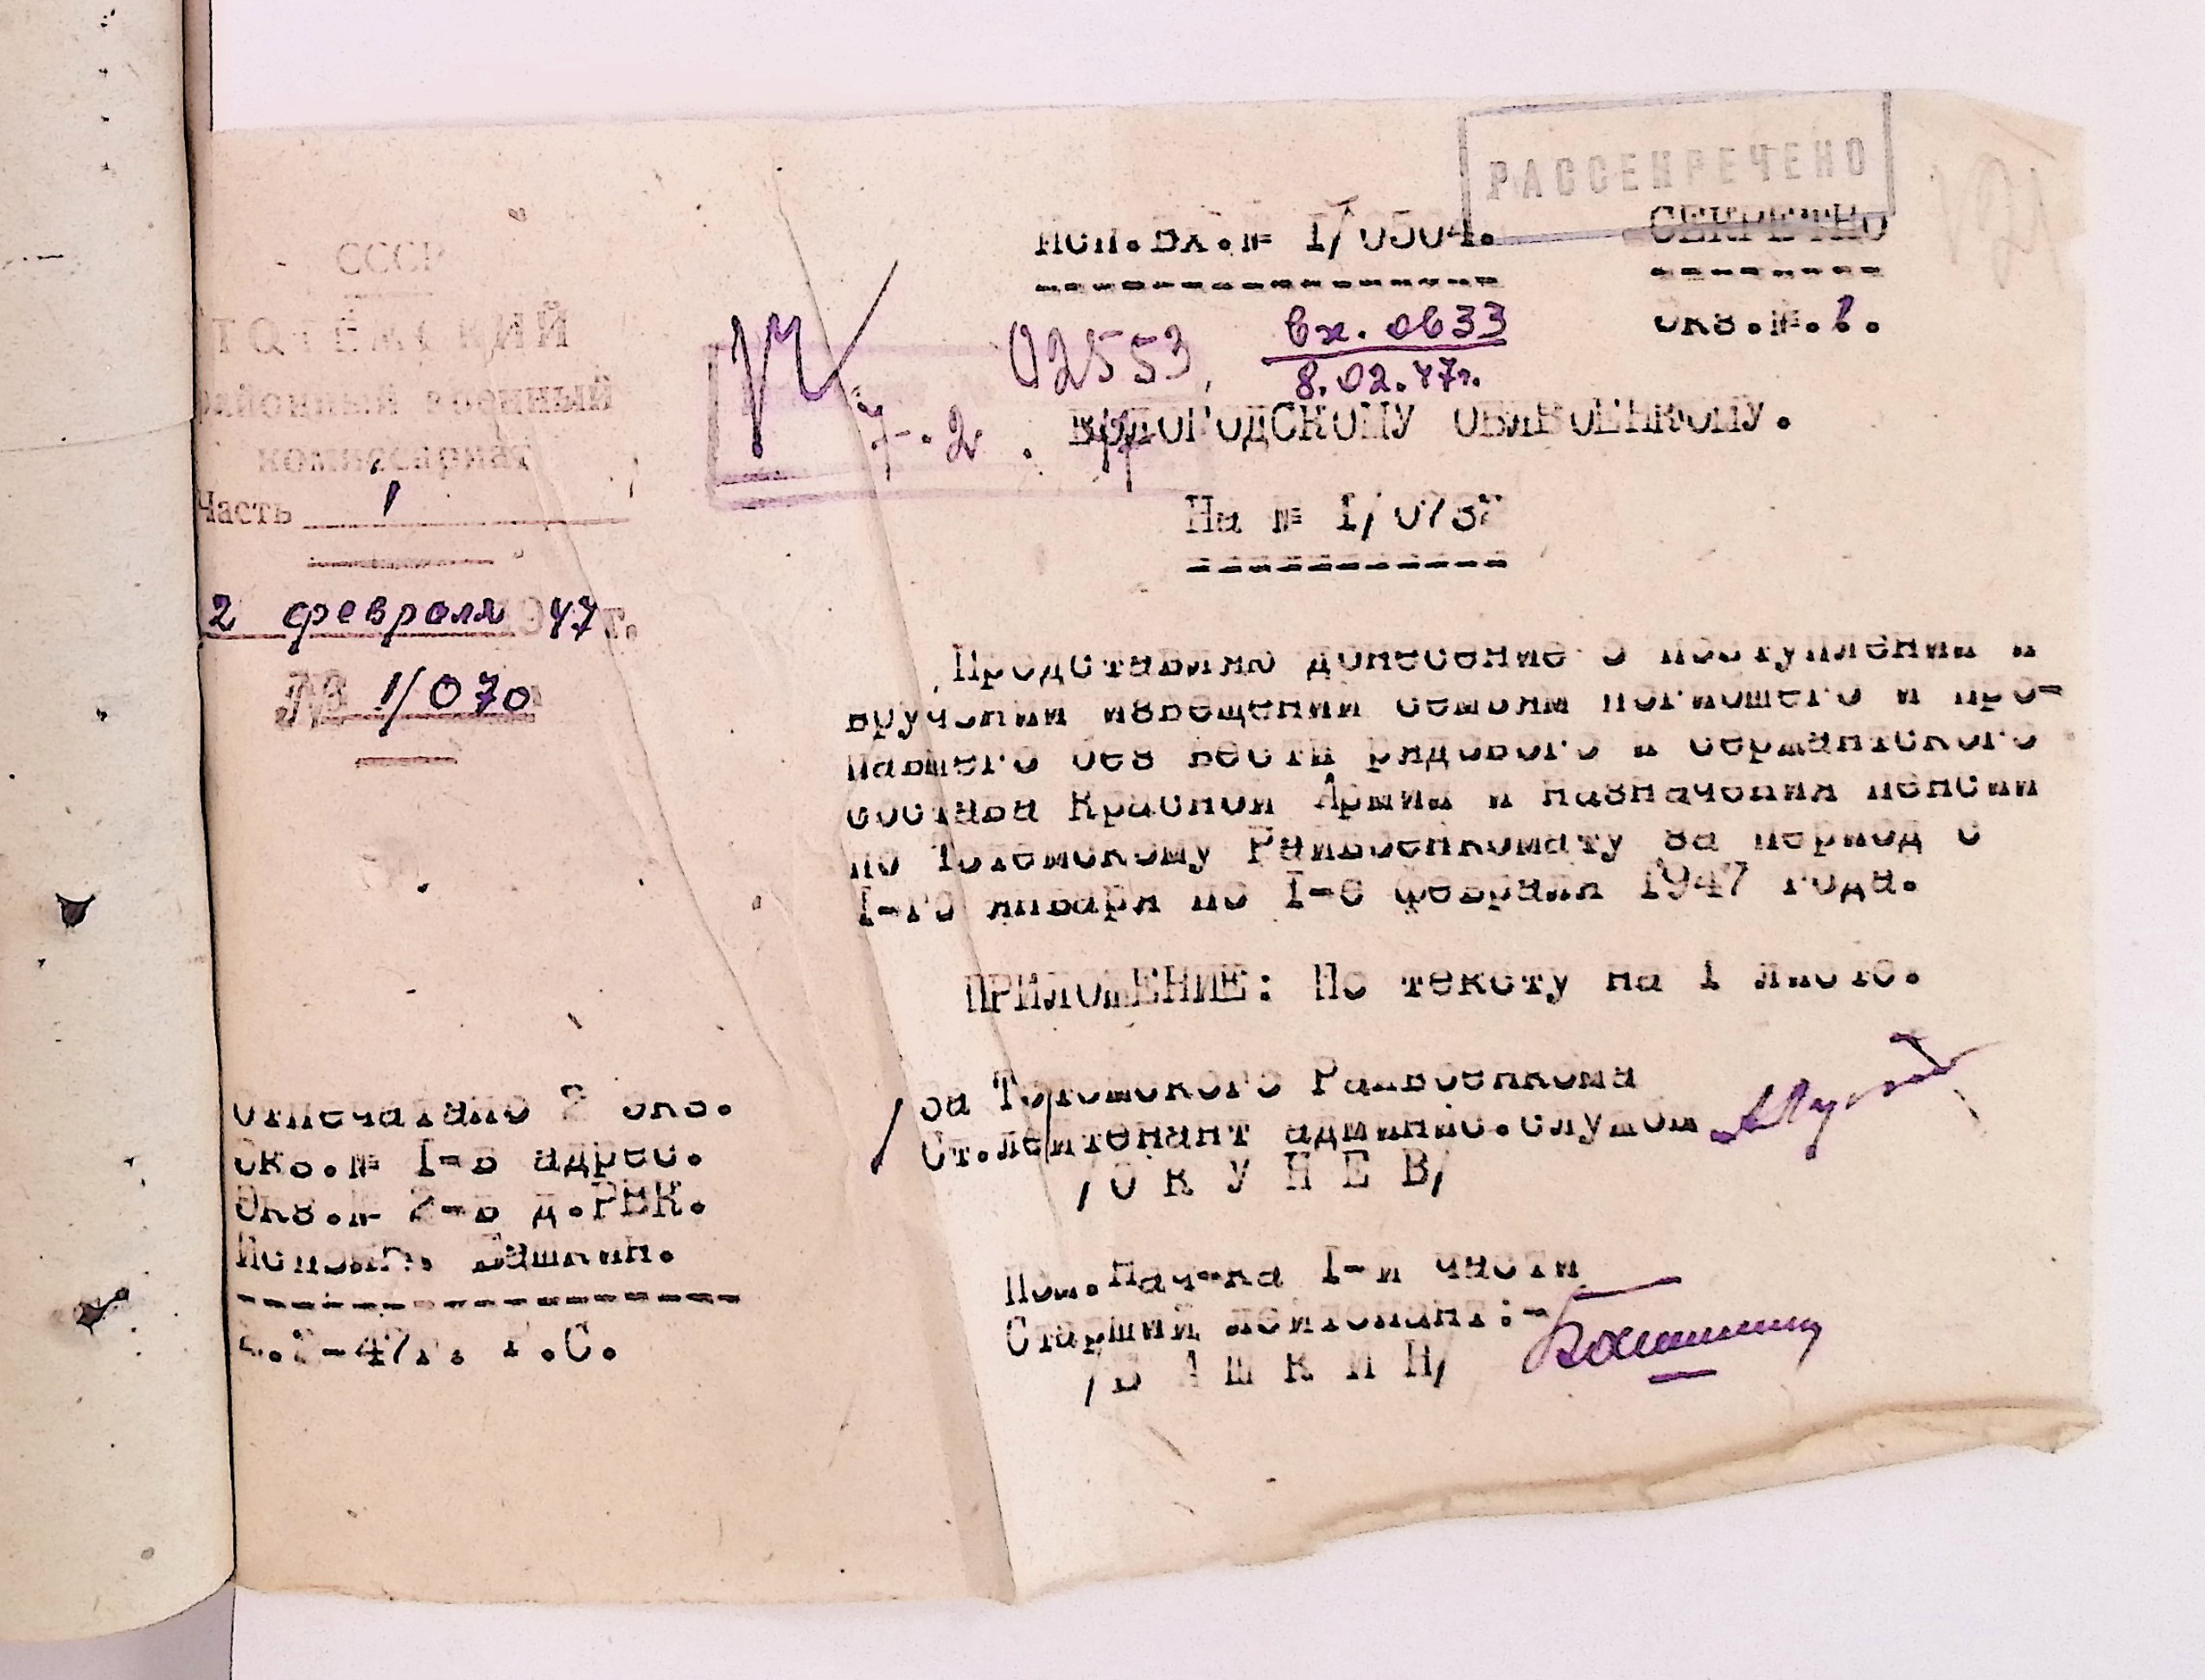 РАССЕКРЕЧЕНО
Исп.вх.№ I/0504.
СЕКРЕТНО
Экз.№.1.
02553
вх. 0633
8.02.47г.
7-.2. 47
ВОЛОГОДСКОМУ ОБЛВОЕНКОМУ.
На № I/073
СССР
ТОТЕМСКИЙ
районный военный
комиссариат
Часть 1
2 февраля 1947 г.
№ 1/070
Представляю донесение о поступлении и
вручении извещений семьям погибшего и про-
павшего без вести рядового и сержантского
состава Красной Армии и назначения пенсии
по Тотемскому Райвоенкомату за период с
I-го января по I-е февраля 1947 года.
ПРИЛОЖЕНИЕ: По тексту на 1 листе.
За Тотемского Райвоенкома
Ст.лейтенант админис.службы
/О К У Н Е В/
Пом.Нач-ка I-й части
Старший лейтенант:-
/Б А Ш К И Н/
Отпечатано 2 экз.
Экз.№ I-в адрес.
Экз.№ 2-в д.РВК.
Исполн. Башкин.
2-47г. Г.С.